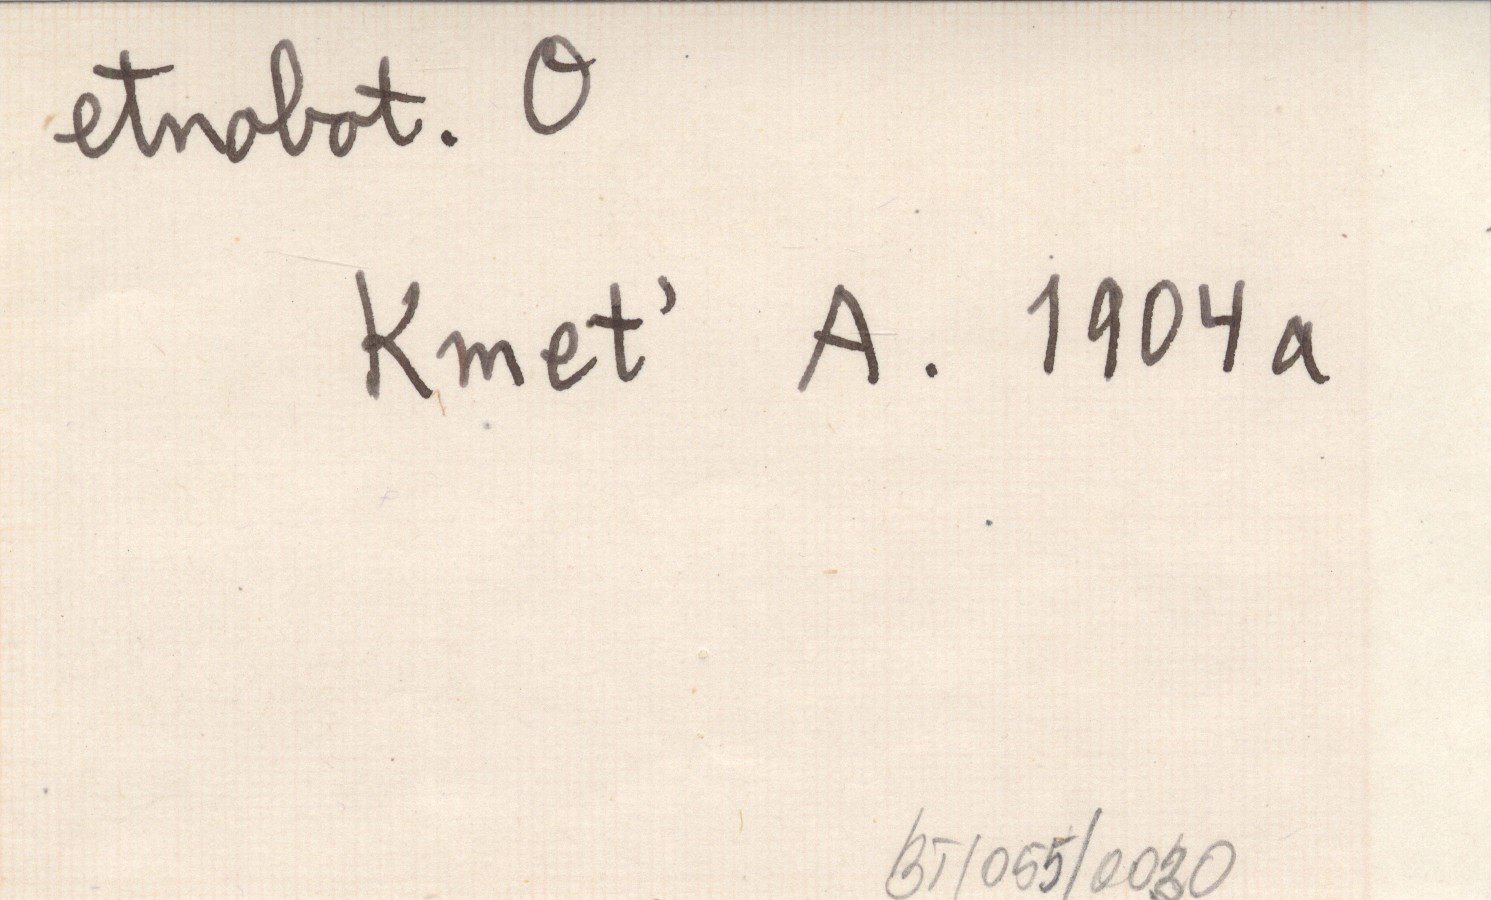 etnobot. O
Kmet' A. 1904a
BT/055/0030